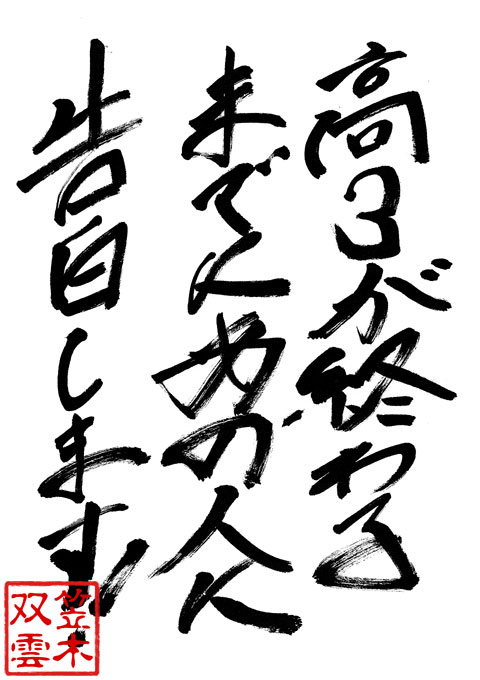 高3が終わる
までにあの人に
告白します
笠木
双雲